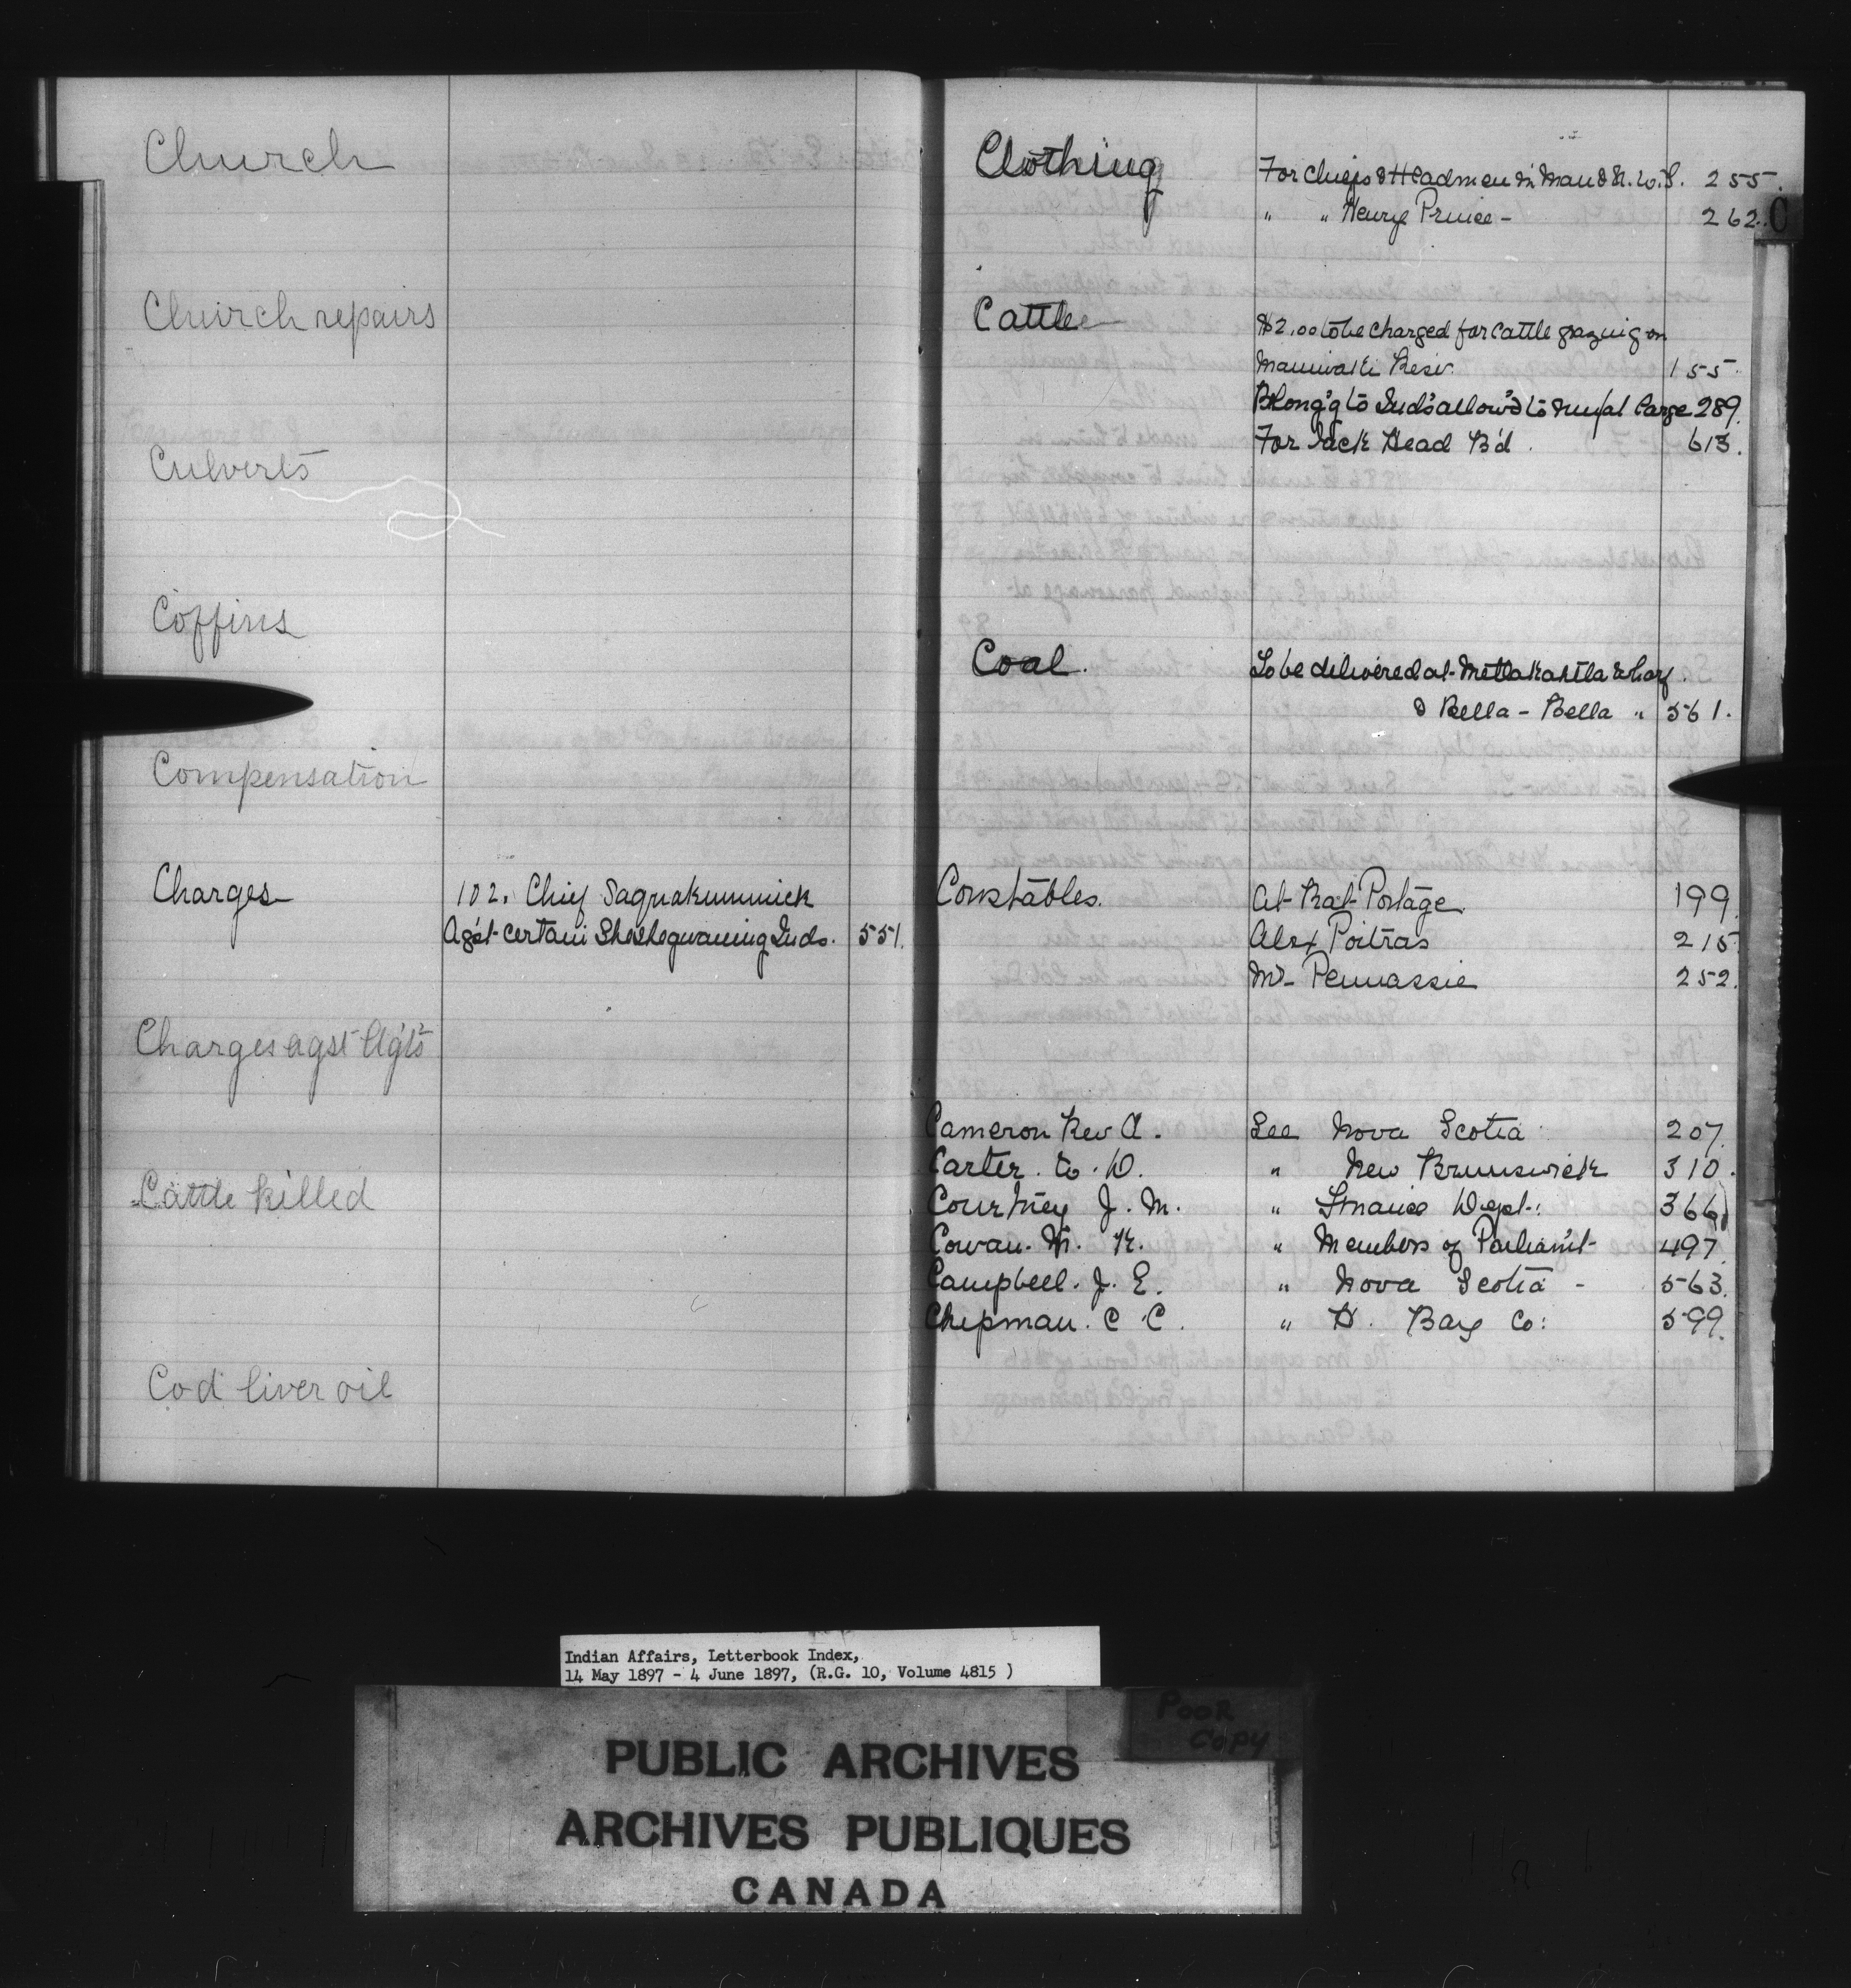 Church
Church repairs
Culverts
Coffins
Compensation
Charges 102. Chief Saquakummick
Ag'st certain Sheshegwaning Inds. 551.
Charges agst Ag'ts
Cattle killed
Cod liver oil
Clothing For Chiefs & Headmen in Man & N.W.T. 255.
" " Henry Prince - 262.
C
Cattle $2.00 to be charged for cattle grazing on
Maniwaki Resv. 155.
Belong'g to Inds allow'd to run at large 289.
For Jack Head B'd. 613.
Coal. To be delivered at Metlakahtla wharf.
& Bella - Bella " 561.
Constables. At Rat Portage. 199.
Alex Poitras 215
Mr Pennassie 252.
Cameron Rev A. See Nova Scotia 207.
Carter. W. D. " New Brunswick 310.
Courtney J. M. " Finance Dept: 366
Cowan. M. K. " Members of Parliam't 497
Campbell. J. E. " Nova Scotia - 563.
Chipman. C. C. " H. Bay Co: 599.
Indian Affairs, Letterbook Index,
14 May 1897 - 4 June 1897, (R.G. 10, Volume 4815 )
POOR
COPY
PUBLIC ARCHIVES
ARCHIVES PUBLIQUES
CANADA